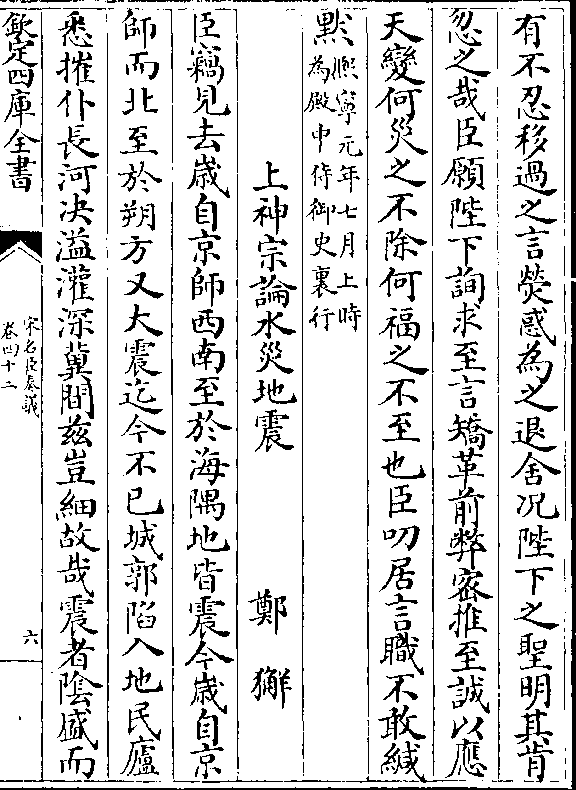 有不忍移過之言熒惑為之退舍况陛下之聖明其肯
忽之哉臣願陛下詢求至言矯革前弊密推至誠以應
天變何災之不除何福之不至也臣叨居言職不敢緘
默熈寧元年七月上時
為殿中侍御史裏行
上神宗論水災地震 鄭獬
臣竊見去歳自京師西南至於海隅地皆震今歳自京
師而北至於朔方又大震迄今不已城郭陷入地民廬
悉摧仆長河决溢灌深冀間兹豈細故哉震者陰盛而
欽定四庫全書
宋名臣奏議
卷四十二
六